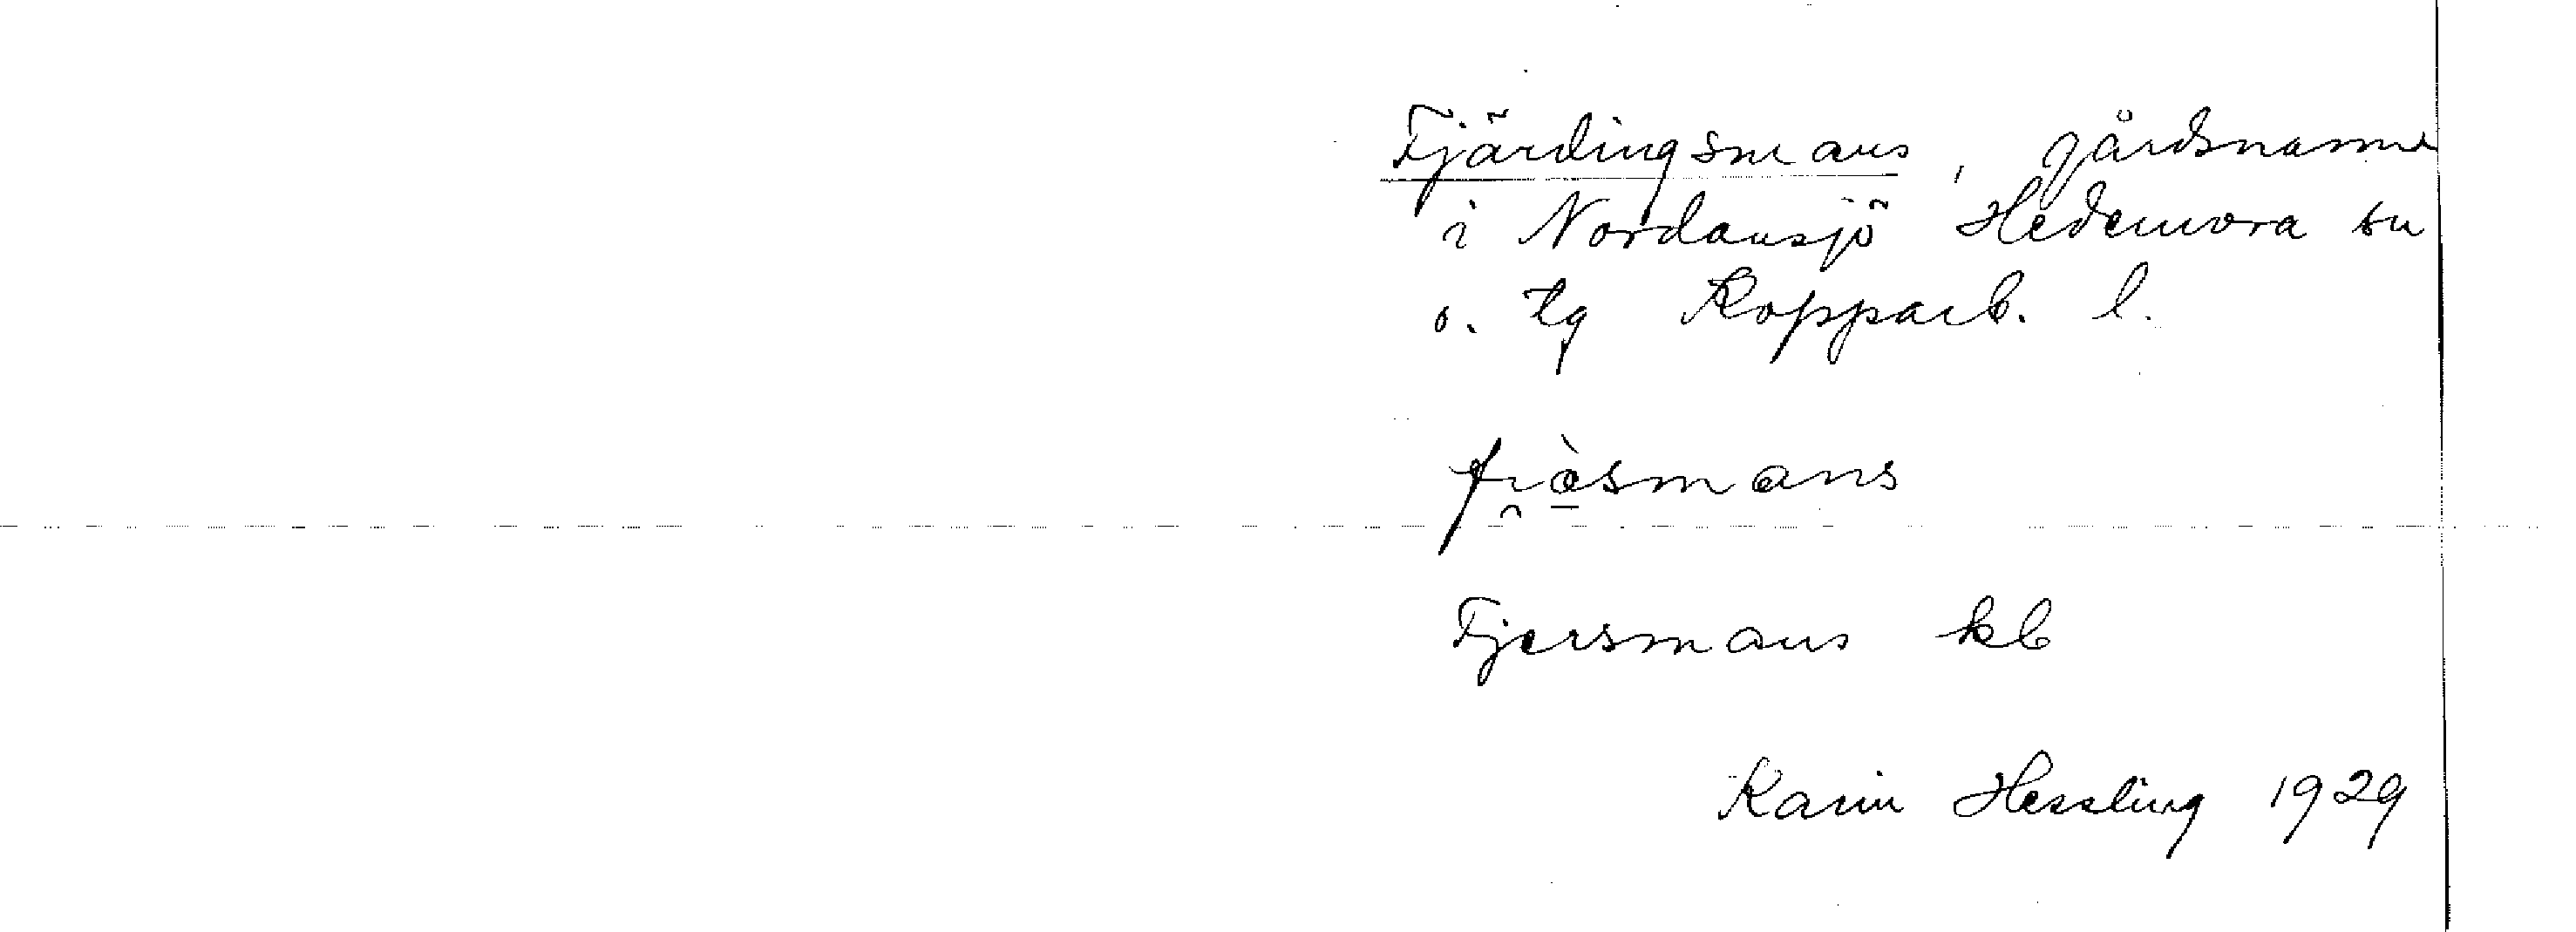 Fjärdingsmans, gårdsnamn
i Nordansjö Hedemora sn
o. tg Kopparb. l.
fi̯æ̀smans
Fjersmans kb
Karin Hessling 1929